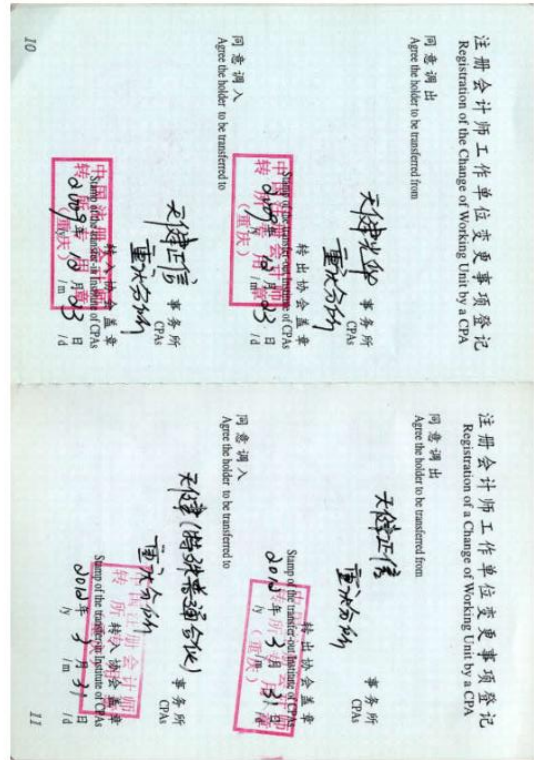 注册会计师工作单位变更事项登记
Registration of the Change of Working Unit by a CPA
同意调出
Agree the holder to be transferred from
天健光华
重庆分所
事务所
CPAs
转出协会盖章
Stamp of the transfer-out Institute of CPAs
2009年 12月 23日
/y /m /d
同意调入
Agree the holder to be transferred to
天健正信
重庆分所
事务所
CPAs
转入协会盖章
Stamp of the transfer-in Institute of CPAs
中国注册会计师
转所专用章
(重庆)
2009年 12月 23日
/y /m /d
10
注册会计师工作单位变更事项登记
Registration of a Change of Working Unit by a CPA
同意调出
Agree the holder to be transferred from
天健正信
重庆分所
事务所
CPAs
转出协会盖章
Stamp of the transfer-out Institute of CPAs
转所专用章
(重庆)
2012年 月 31日
/y /m /d
同意调入
Agree the holder to be transferred to
天健(特殊普通合伙)
重庆分所
事务所
CPAs
转入协会盖章
Stamp of the transfer-in Institute of CPAs
中国注册会计师
2012年 3月 31日
/y /m /d
11